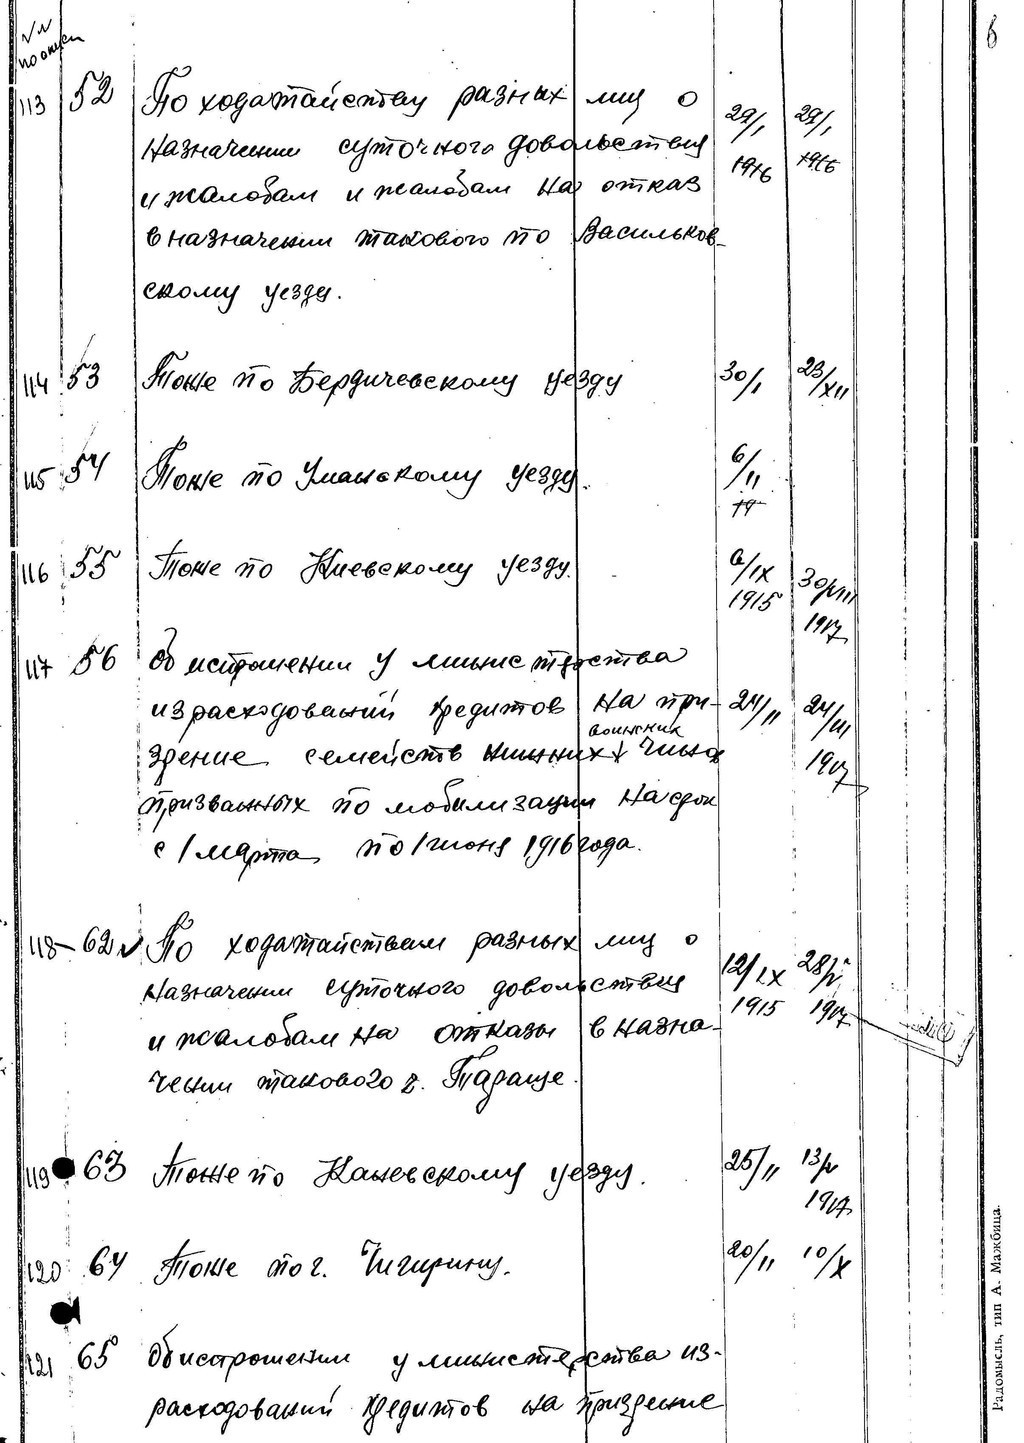 №№
по описи
8
113 52 По ходатайству разных лиц о 29/I 29/I
назначении суточного довольствия 1916 1916
и жалобам и жалобам на отказ
в назначении такового по Васильков-
скому уезду.
114 53 Тоже по Бердичевскому уезду 30/I 23/XII
115 54 Тоже по Уманскому уезду. 6/II
116 55 Тоже по Киевскому уезду. 6/IX
1915 30/VIII
1917
117 56 Об испрошении у министерства
израсходований кредитов на при- 24/II 24/III
воинских
зрение семейств нижних чинов 1917
призванных по мобилизации на срок
с 1 марта по 1 июня 1916 года.
118 62 По ходатайствам разных лиц о
назначении суточного довольствия 12/IX 28/V
и жалобам на отказы в назна- 1915 1917
чении такового г. Тараще.
119 63 Тоже по Каневскому уезду. 25/II 13/V
1917
120 64 Тоже по г. Чигирину. 20/II 10/X
121 65 Об испрошении у министерства из-
расходований кредитов на призрение
Радомысль, тип А. Мажбица.